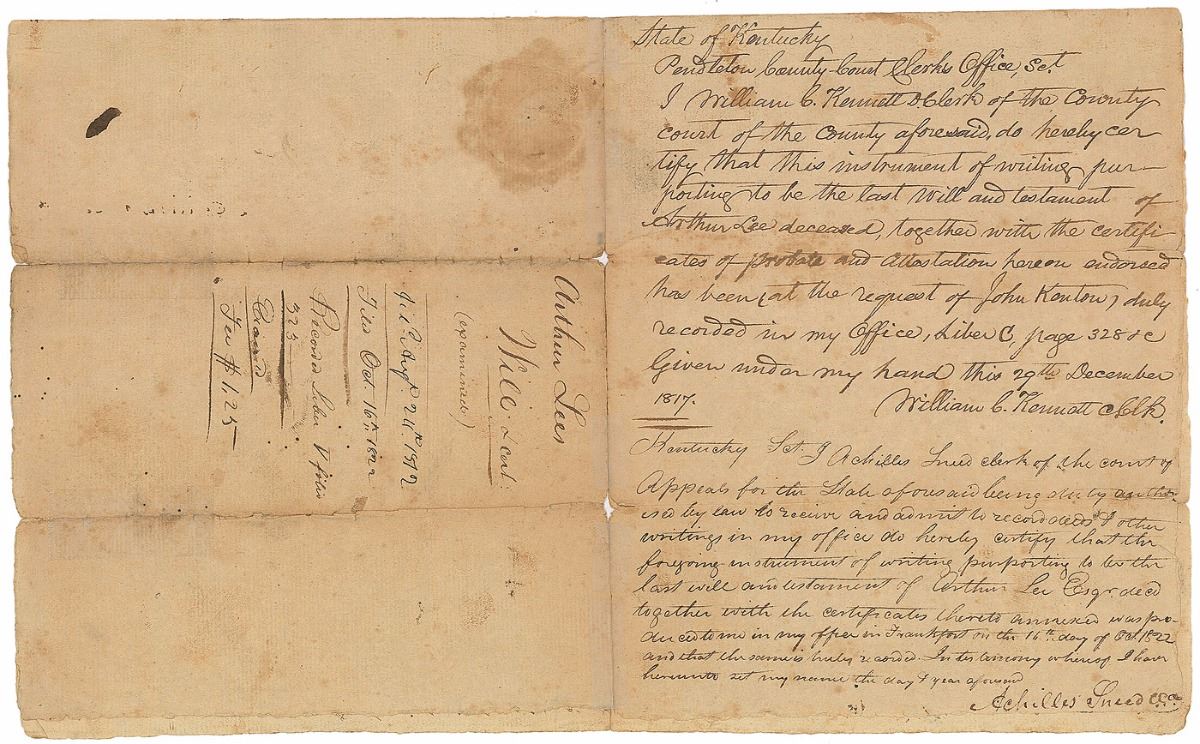 State of Kentucky
Pendleton County Court Clerk's Office, Sct.
I William C. Kennett Clerk of the County
court of the County aforesaid, do hereby cer
tify that this instrument of writing pur-
porting to be the last Will and testament of
Arthur Lee deceased, together with the certifi
cates of probate and attestation hereon endorsed
has been (at the request of John Kenton) duly
recorded in my Office, Liber C, page 328 &c
Given under my hand this 29th December
1817.
William C. Kennett Clk.
Kentucky Sct. I Achilles Sneed clerk of the court of
Appeals for the State aforesaid being duly autho-
ised by law to receive and admit to record deeds & other
writings in my office do hereby certify that the
foregoing instrument of writing purporting to be the
last will and testament of Arthur Lee Esqr decd
together with the certificates thereto annexed was pro-
duced to me in my office in Frankfort on the 16th day of Oct 1822
and that the same is truly recorded. In testimony whereof I have
hereunto set my name the day & year aforesaid
Achilles Sneed
Arthur Lees
Will
(examined)
Augt 24th 1812
Oct. 16th 1822
Record Liber V folio
323
Examd
Fee $1.25